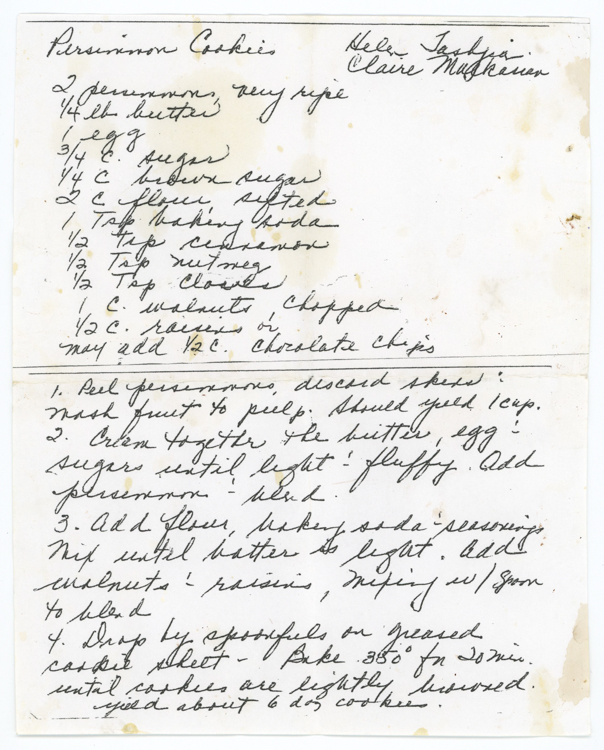 Persimmon Cookies
Helen Tashjian
Claire
2 persimmons, very ripe
1/4 lb butter
1 egg
3/4 C. sugar
1/4 C brown sugar
2 C flour, sifted
1 Tsp baking soda
1/2 Tsp cinnamon
1/2 Tsp nutmeg
1/2 Tsp Cloves
1 C. walnuts, chopped
1/2 C. raisins or
may add 1/2 C. Chocolate Chips
1. Peel persimmons, discard skins &
mash fruit to pulp. Should yield 1 cup.
2. Cream together the butter, egg &
sugars until light & fluffy. Add
persimmon & blend.
3. Add flour, baking soda & seasonings
Mix until batter is light. Add
walnuts & raisins, mixing w/ spoon
to blend
4. Drop by spoonfuls on greased
cookie sheet - Bake 350° for 20 min.
until cookies are lightly browned.
yield about 6 doz cookies.